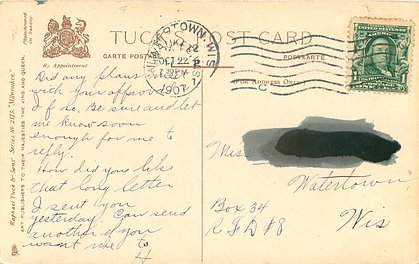 TUCK'S POST CARD
CARTE POSTALE
POSTKARTE
FOR ADDRESS ONLY.
By Appointment.
WATERTOWN, WIS.
OCT 22
1907
Did any plans
with your approval
If so. Be sure and let
me know soon
enough for me to
reply.
How did you like
that long letter
I sent you
yesterday. Can send
another if you
want me to
Miss
Watertown
Box 34
R F D #8
Wis
Raphael Tuck & Sons' Series No. 2175
ART PUBLISHERS TO THEIR MAJESTIES THE KING AND QUEEN.